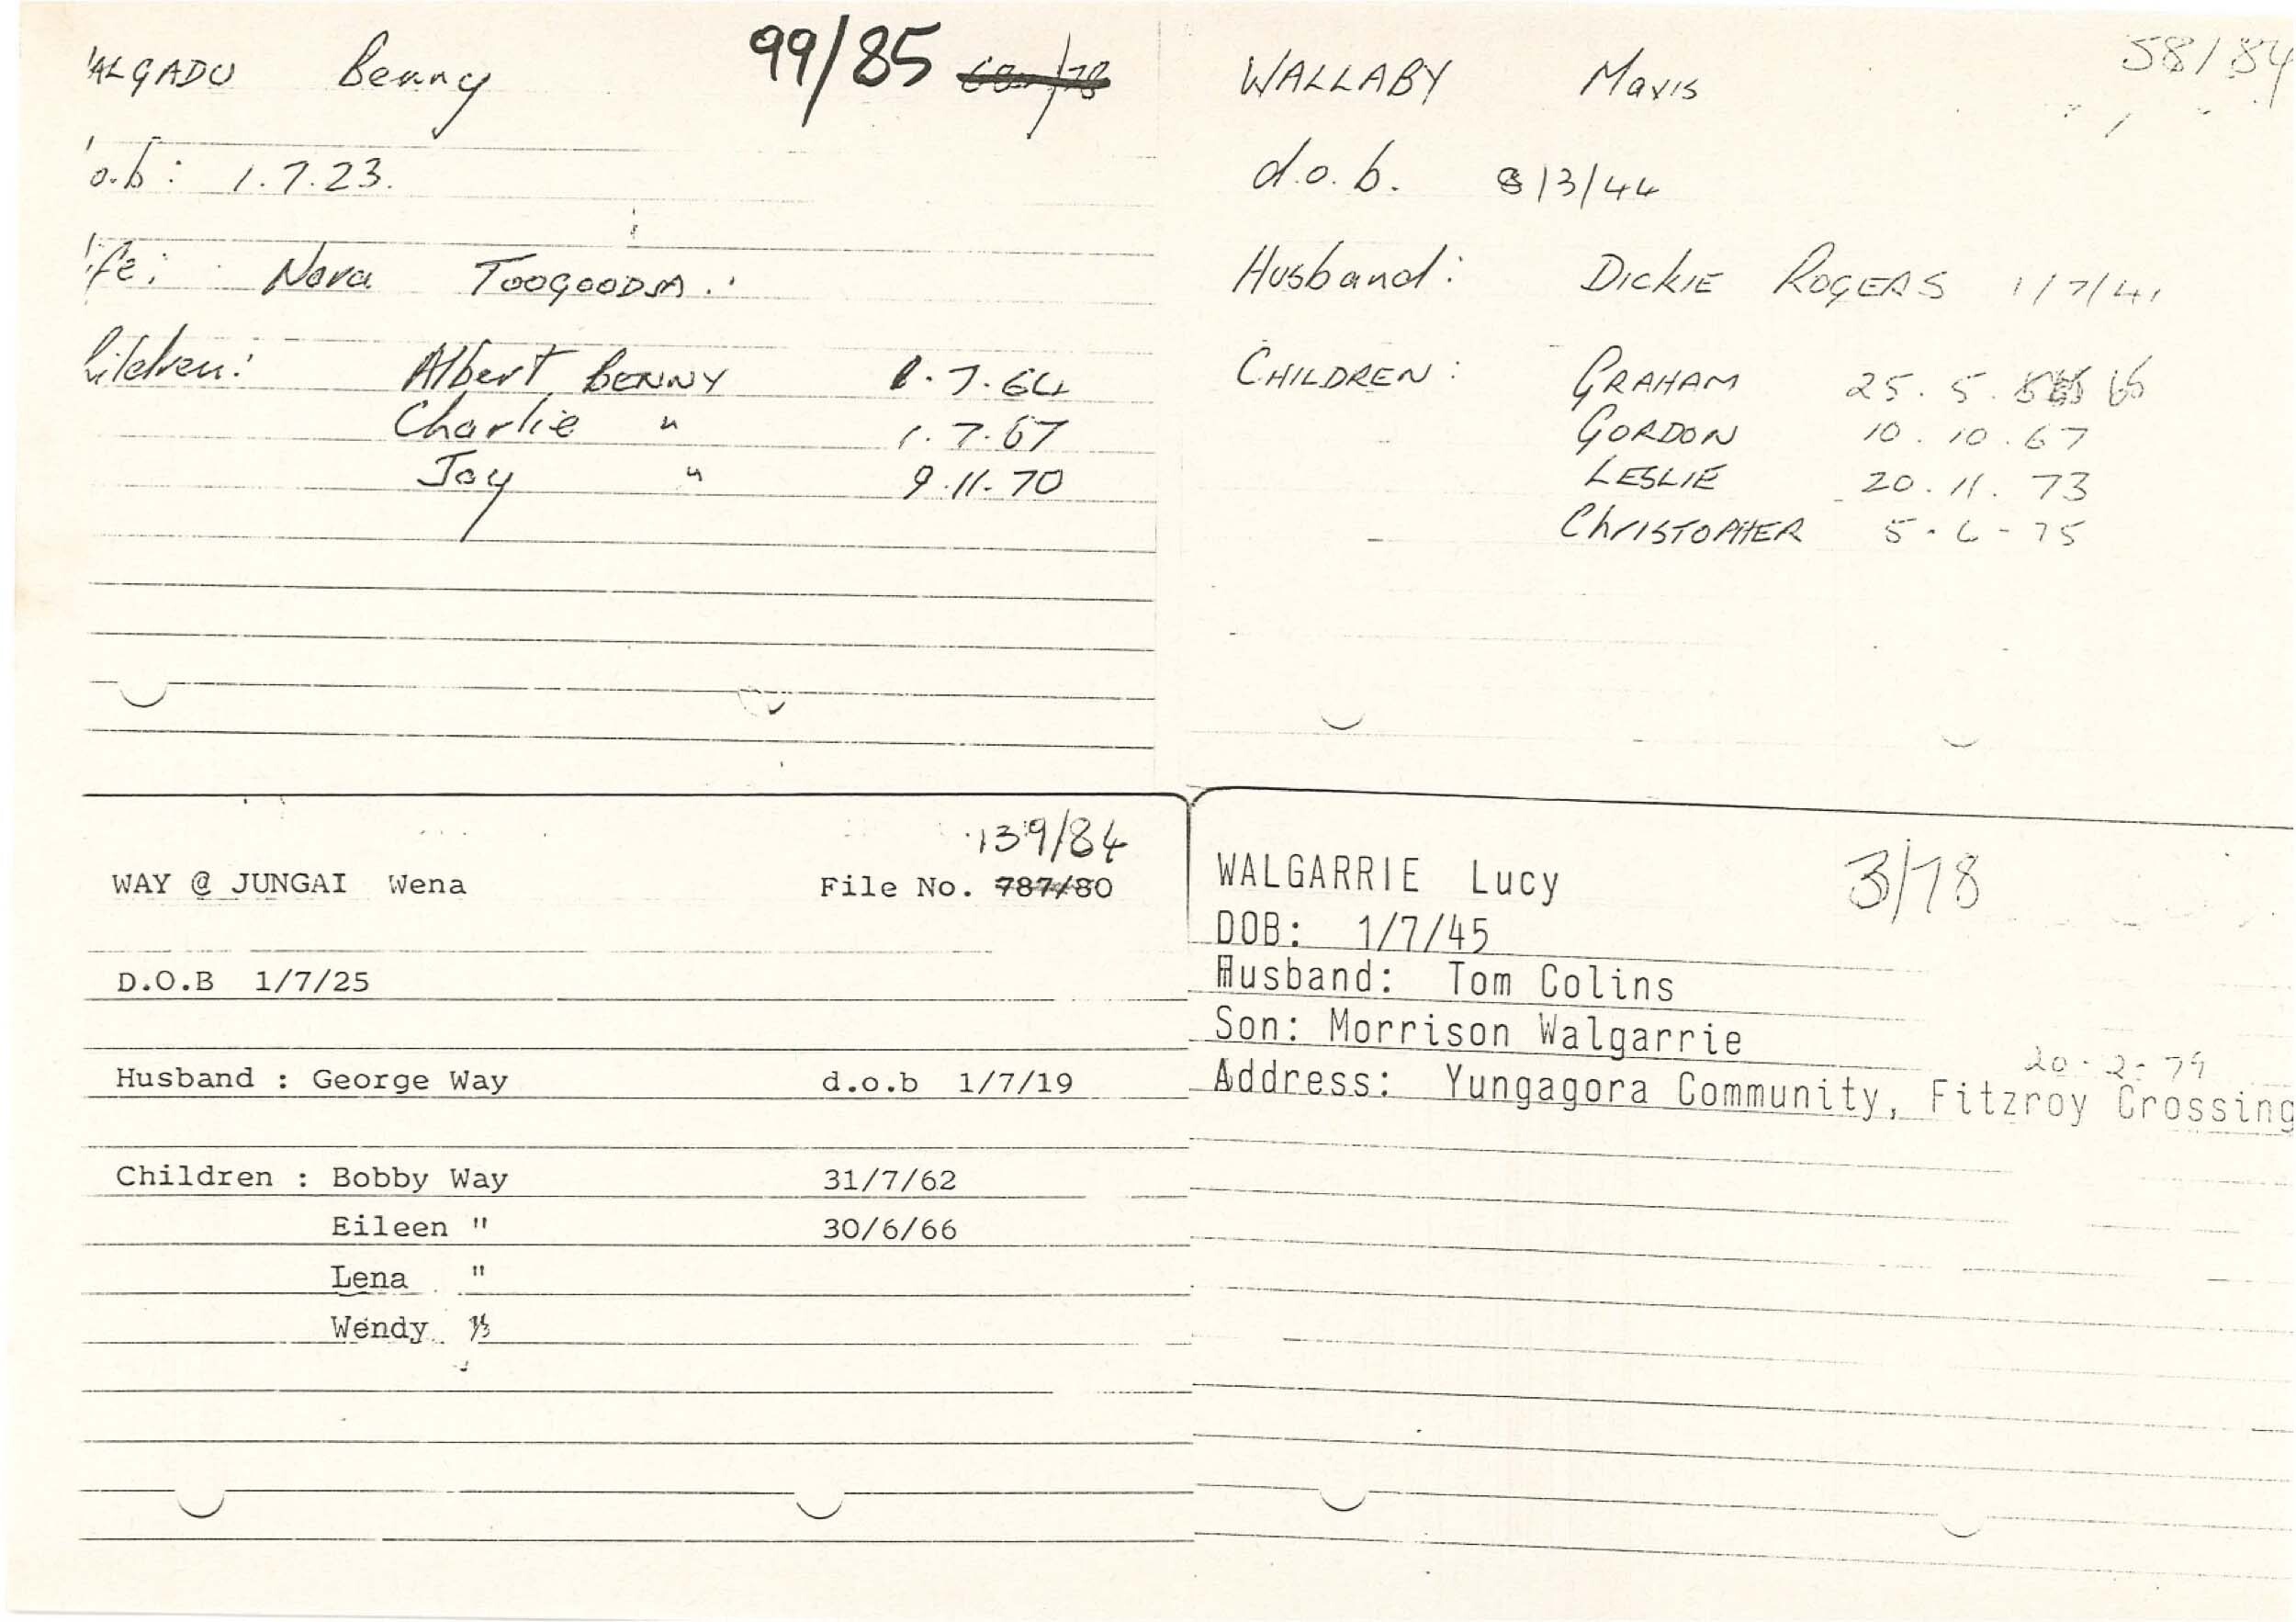 ALGADU Benny 99/85
o.b: 1.7.23.
ife: Nora
hildren: Albert BENNY 1.7.64
Charlie " 1.7.67
Joy " 9.11.70
WALLABY Mavis 58/84
d.o.b. 8/3/44
Husband: DICKIE ROGERS 1/7/41
CHILDREN: GRAHAM 25.5.
GORDON 10.10.67
LESLIE 20.11.73
CHRISTOPHER 5-6-75
139/84
WAY @ JUNGAI Wena File No. 787/80
D.O.B 1/7/25
Husband : George Way d.o.b 1/7/19
Children : Bobby Way 31/7/62
Eileen " 30/6/66
Lena "
Wendy
WALGARRIE Lucy 3/78
DOB: 1/7/45
Husband: Tom Colins
Son: Morrison Walgarrie
20-2-79
Address: Yungagora Community, Fitzroy Crossing